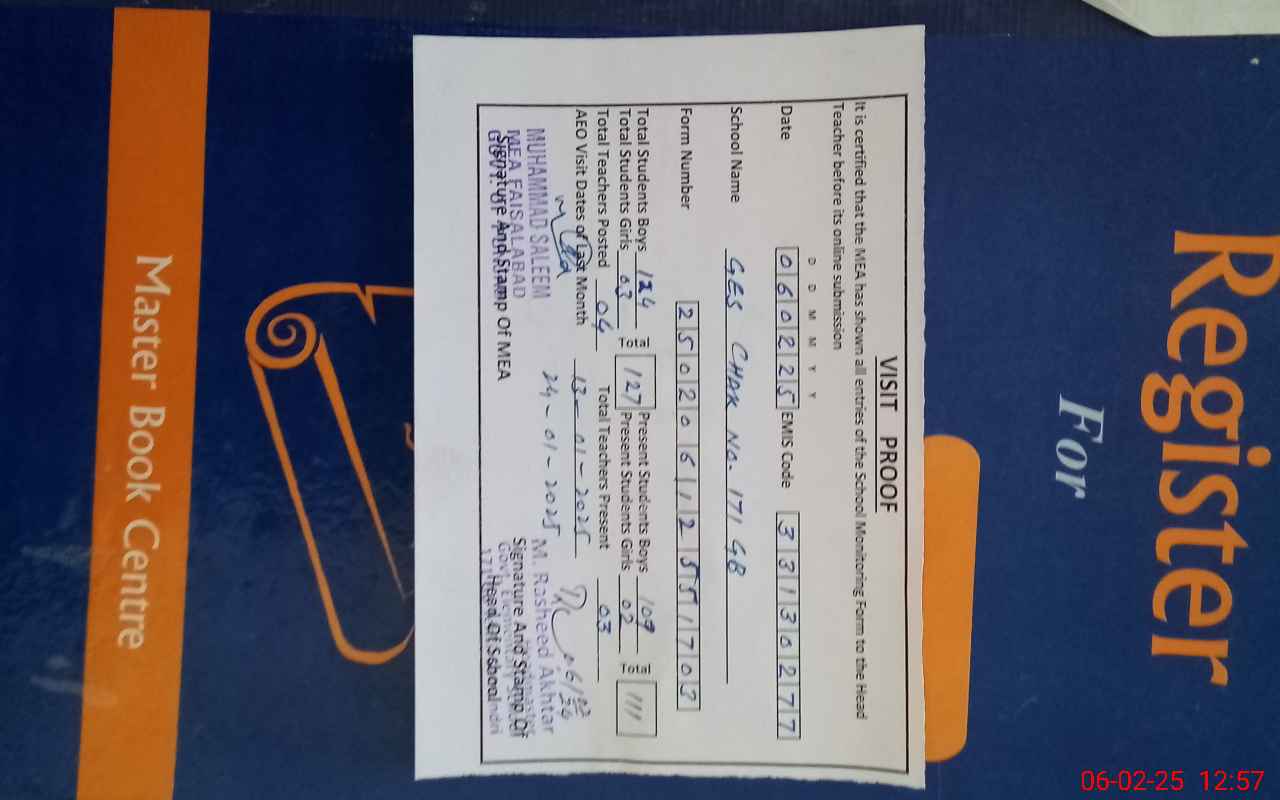 Register
For
VISIT PROOF
It is certified that the MEA has shown all entries of the School Monitoring Form to the Head
Teacher before its online submission
D D M M Y Y
Date 060225 EMIS Code 33130277
School Name GES CHAK NO. 171 GB
Form Number 25020612551703
Total Students Boys 124 Total 127 Present Students Boys 109 Total 111
Total Students Girls 03 Present Students Girls 02
Total Teachers Posted 04 Total Teachers Present 03
AEO Visit Dates of Last Month 13-01-2025
24-01-2025
MUHAMMAD SALEEM
MEA FAISALABAD
Signature And Stamp Of MEA
M. Rasheed Akhtar
Signature And Stamp Of
Head Of School
Master Book Centre
06-02-25 12:57